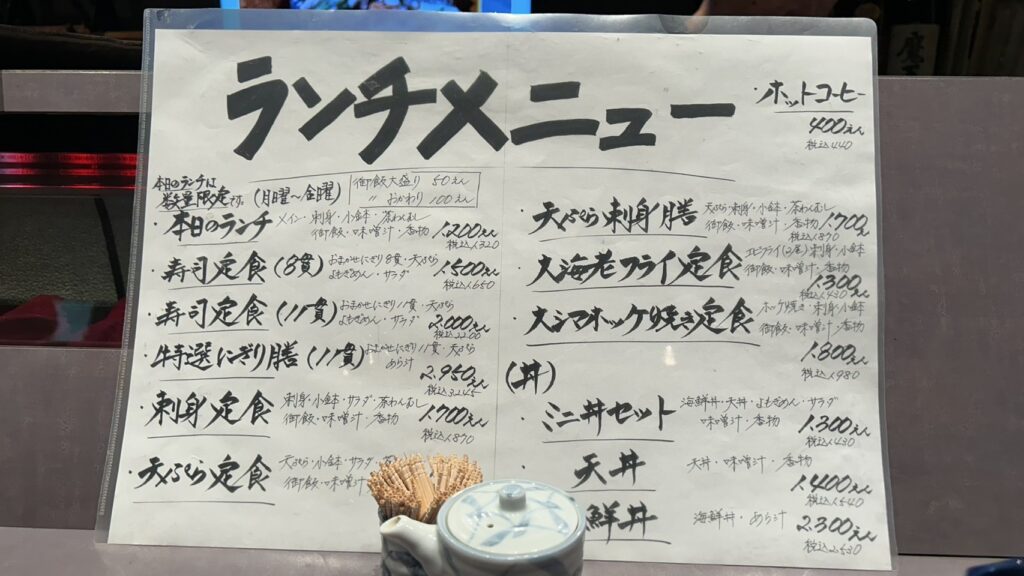 ランチメニュー
・ホットコーヒー
400えん
税込440
本日のランチは
数量限定です。(月曜〜金曜)
御飯大盛り 50えん
〃 おかわり 100えん
・本日のランチ メイン・刺身・小鉢・茶わんむし
御飯・味噌汁・香物 1.200えん
税込1.320
・寿司定食(8貫) おまかせにぎり8貫・天ぷら
よもぎめん・サラダ 1.500えん
税込1.650
・寿司定食(11貫) おまかせにぎり11貫・天ぷら
よもぎめん・サラダ 2.000えん
税込2200
・特選にぎり膳(11貫) おまかせにぎり11貫・天ぷら
あら汁
2.950えん
税込3245
・刺身定食 刺身・小鉢・サラダ・茶わんむし
御飯・味噌汁・香物 1.700えん
税込1.870
・天ぷら定食 天ぷら・小鉢・サラダ・
御飯・味噌汁
・天ぷら刺身膳 天ぷら・刺身・小鉢・茶わんむし
御飯・味噌汁・香物 1.700えん
税込1.870
・大海老フライ定食 エビフライ 刺身・小鉢
御飯・味噌汁・香物
1.300えん
税込1.430えん
・大シマホッケ焼き定食 ホッケ焼き・刺身・小鉢
御飯・味噌汁・香物
1.800えん
税込1.980
(丼)
・ミニ丼セット 海鮮丼・天丼・よもぎめん・サラダ
味噌汁・香物 1.300えん
税込1.430
天丼 天丼・味噌汁・香物
1.400えん
税込1.540
鮮丼 海鮮丼・あら汁 2.300えん
税込2.530